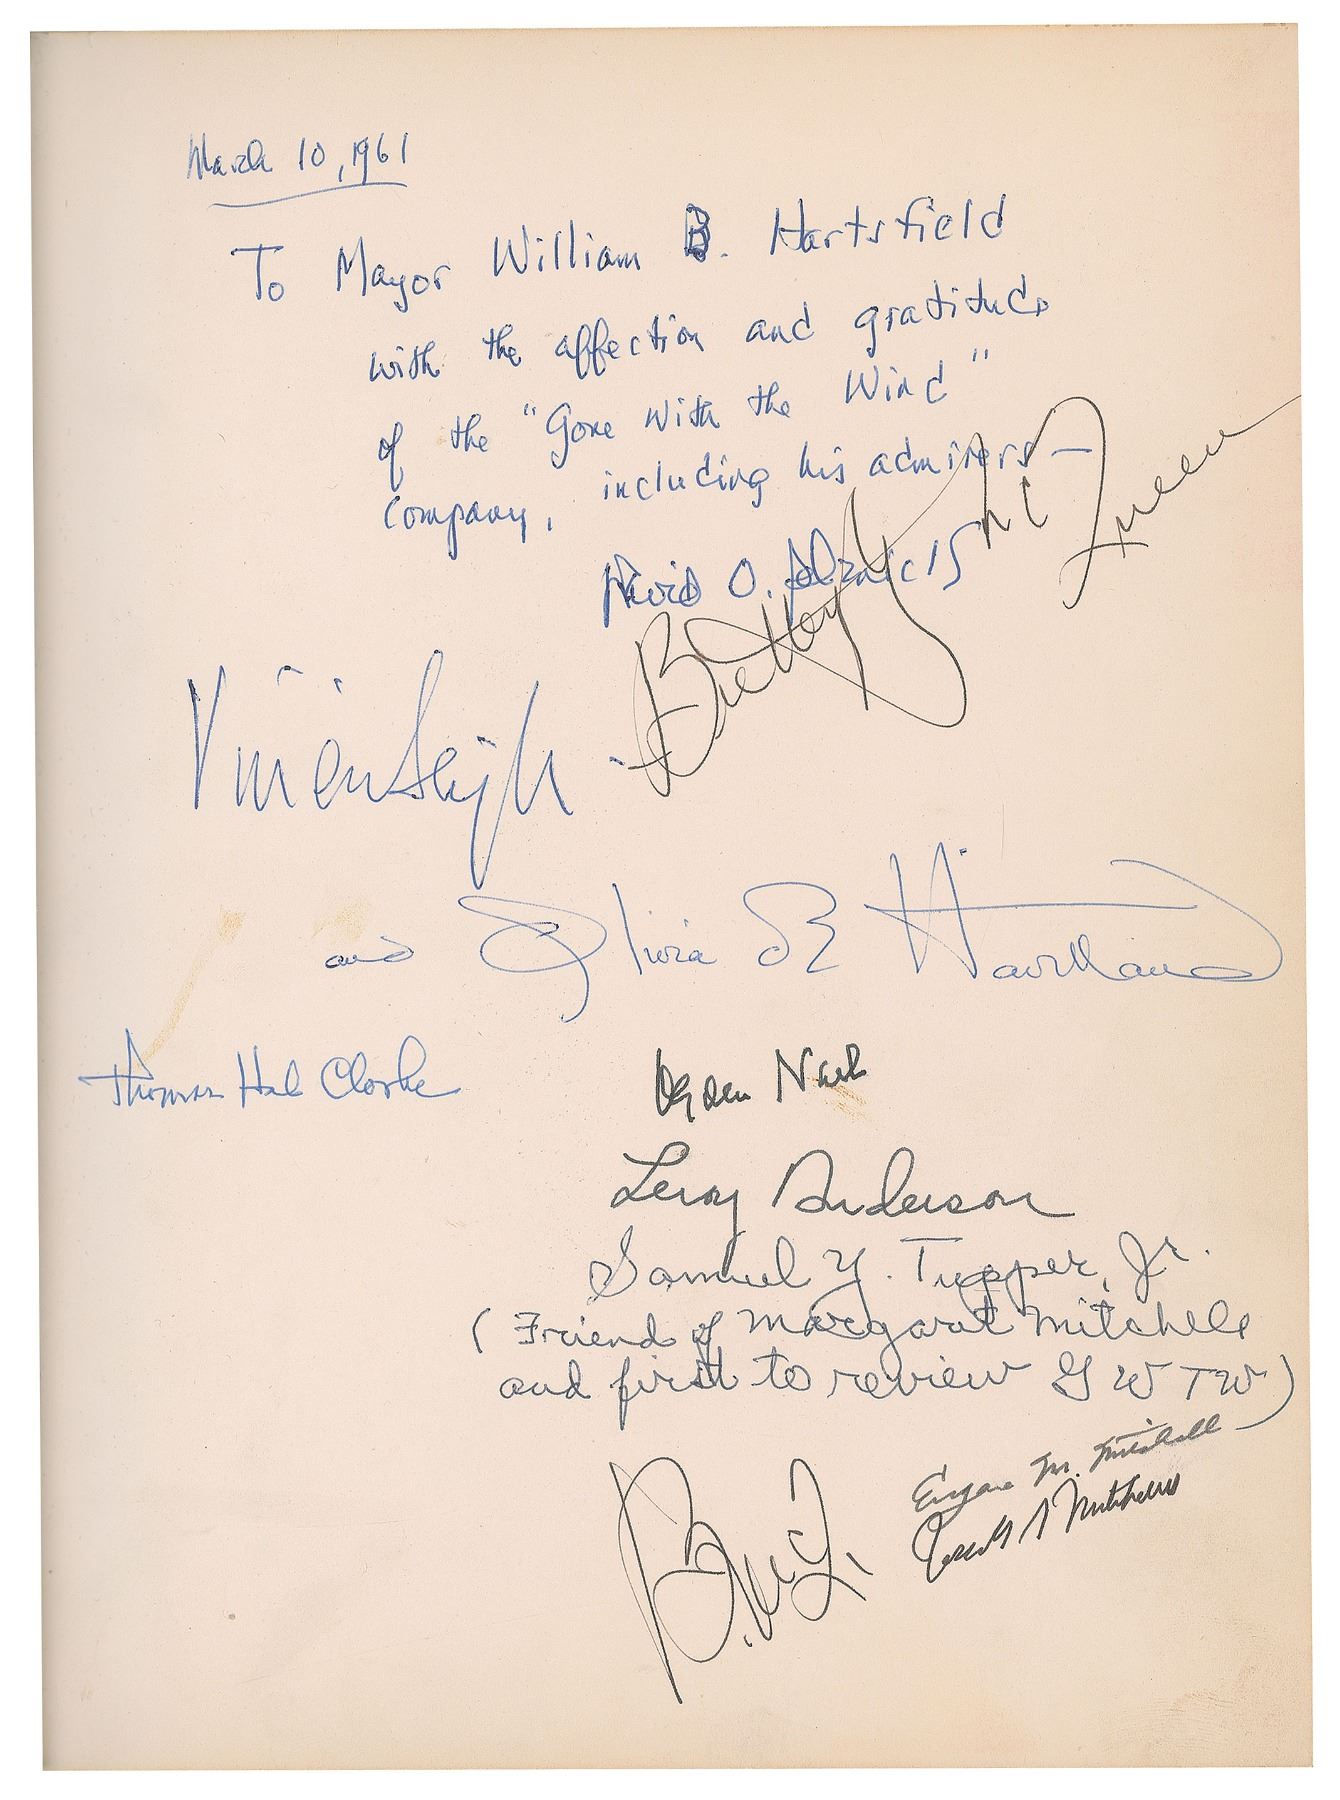 March 10, 1961
To Mayor William B. Hartsfield
with the affection and gratitude
of the "Gone With the Wind"
Company, including his admirers—
David O. Selznick
Vivien Leigh -
Butterfly McQueen
and Olivia de Havilland
Thomas Hal Clarke
Ogden Nash
Leroy Anderson
Samuel Y. Tupper, Jr.
(Friend of Margaret Mitchell
and first to review GWTW)
Eugene M. Mitchell
B. McQ.